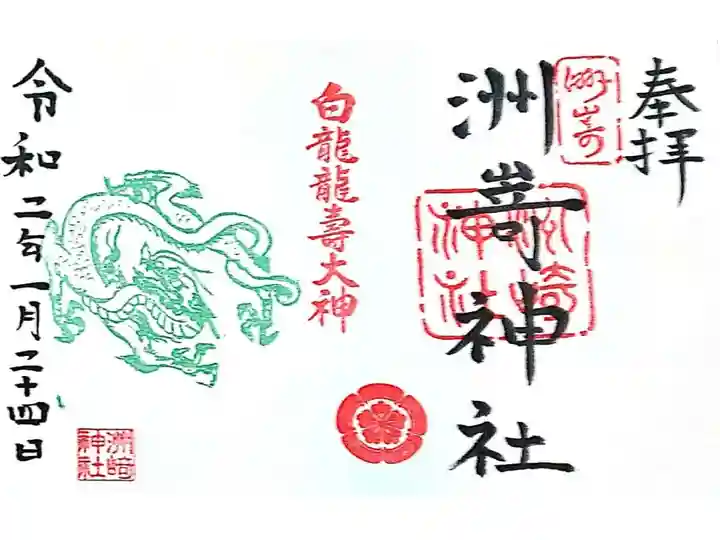 奉拝
洲嵜
洲嵜神社
洲崎神社
白龍龍壽大神
洲崎神社
令和二年一月二十四日